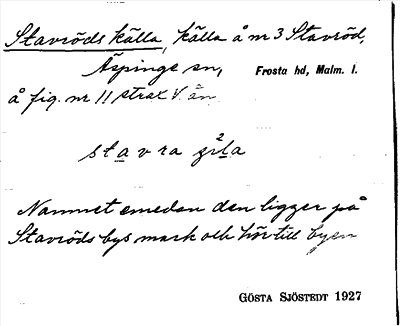 Stavröds källa, källa å nr 3 Stavröd,
Äspinge sn, Frosta hd, Malm. l.
å fig. nr 11 strax V. ån.
stavra
Namnet emedan den ligger på
Stavröds bys mark och hör till byen
GÖSTA SJÖSTEDT 1927